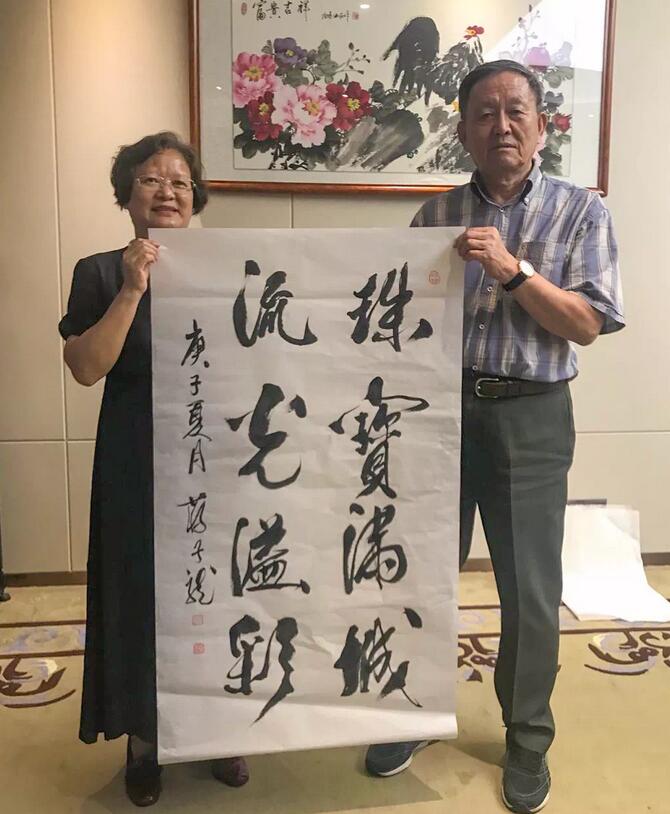 富貴吉祥
珠寶滿城
流光溢彩
庚子夏月 蔣子龍